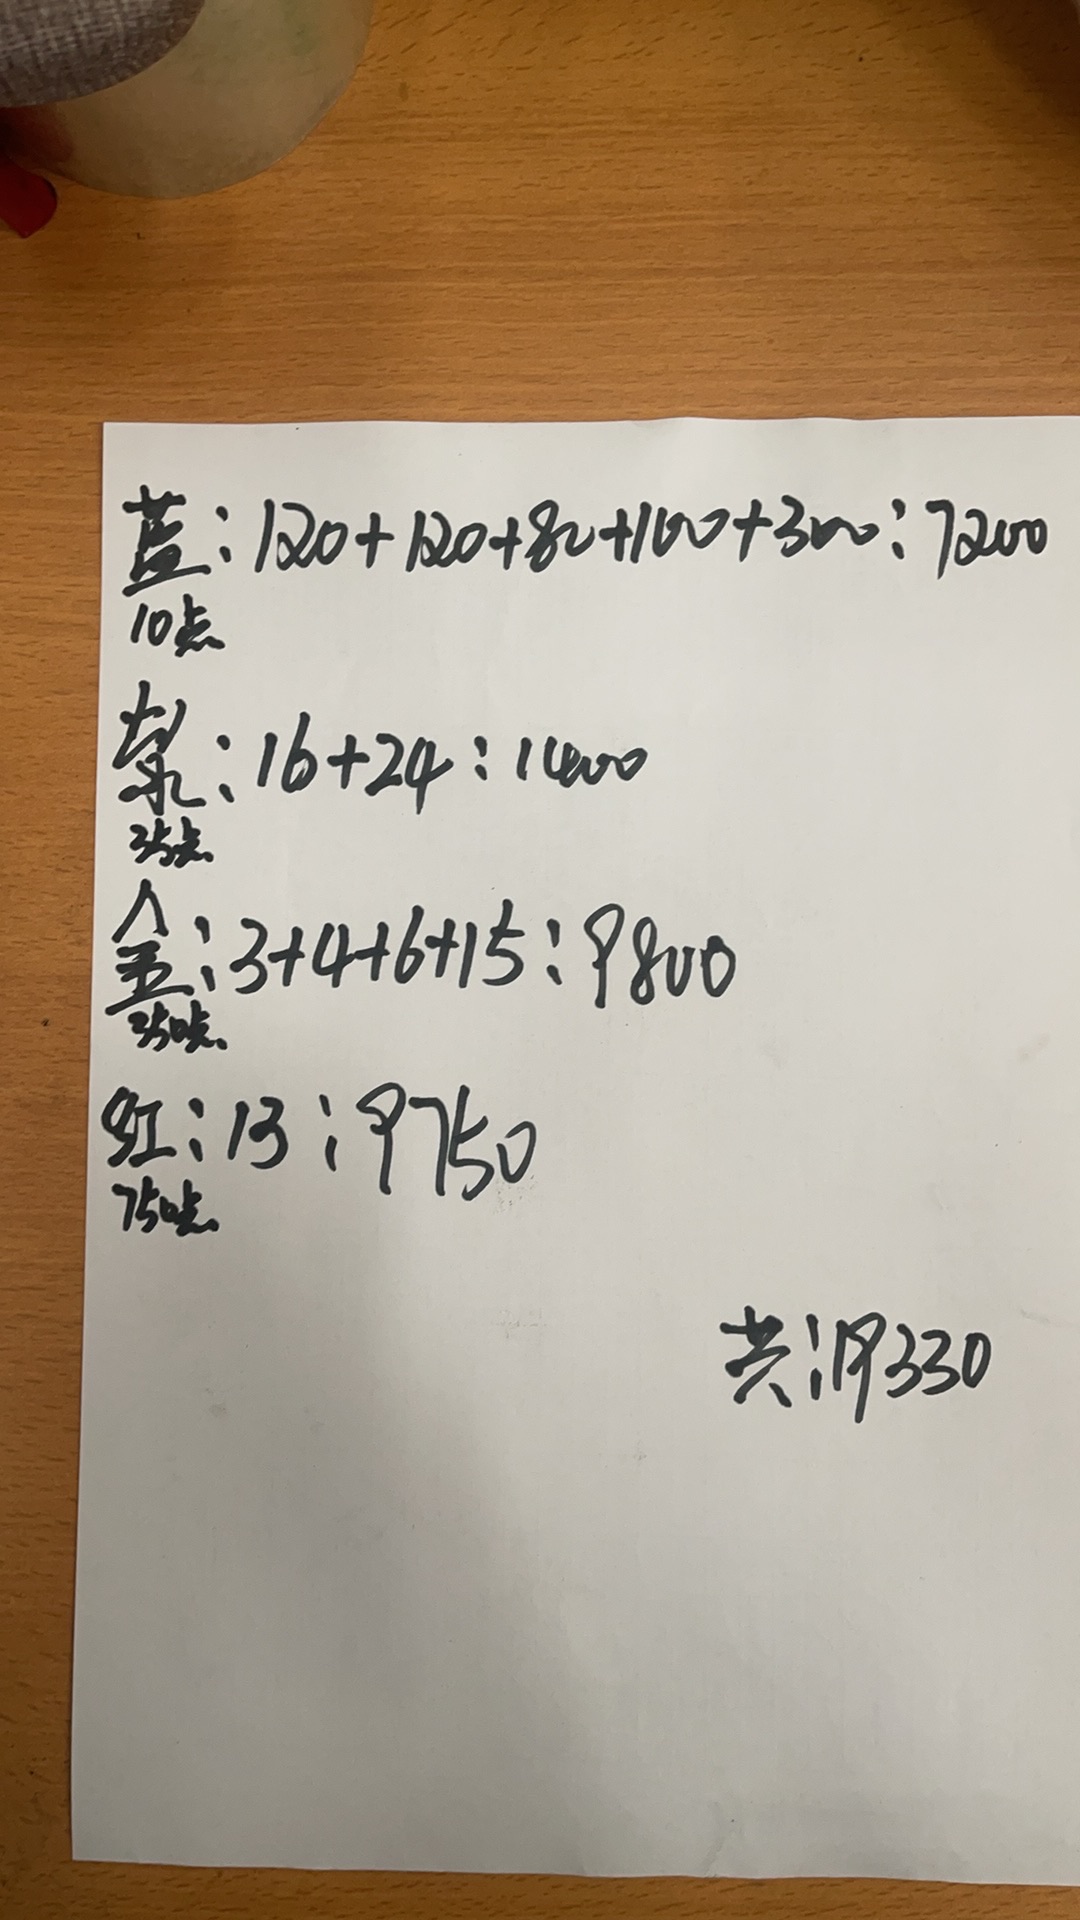 蓝:120+120+80+100+300:7200
10点
紫:16+24:1400
35点
金:3+4+6+15:9800
350点
红:13:9750
750点
共:19330